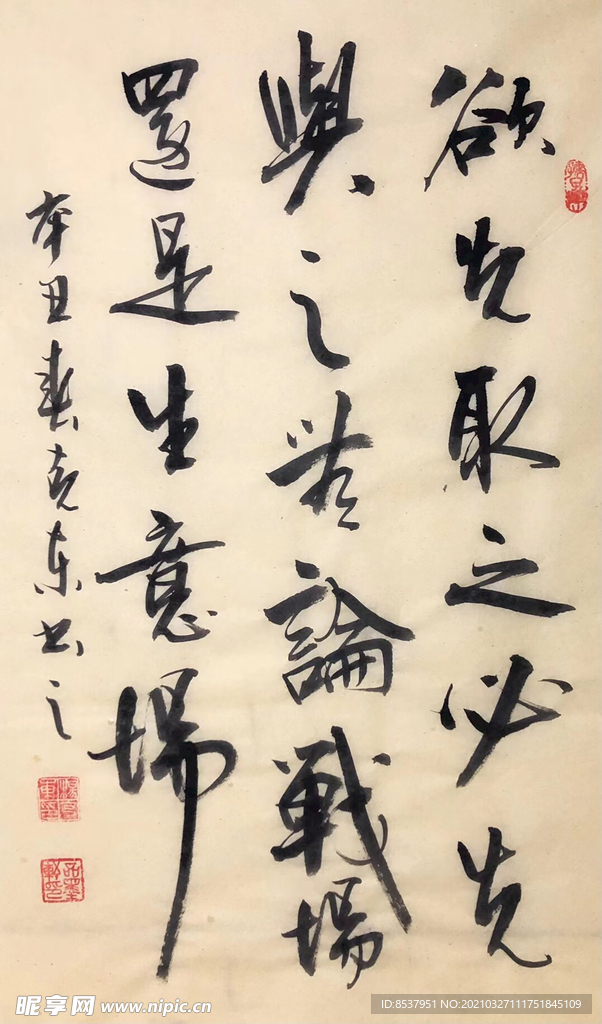 欲先取之必先
與之無論戰場
還是生意場
辛丑春克东书之
昵享网 www.nipic.cn
ID:8537951 NO:20210327111751845109